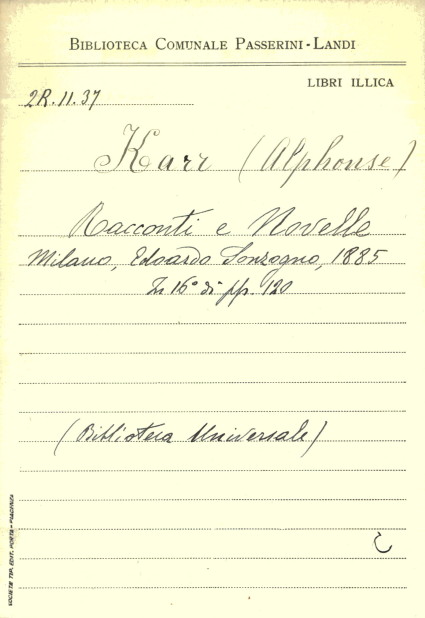 BIBLIOTECA COMUNALE PASSERINI-LANDI
LIBRI ILLICA
2R.II.37
Karr (Alphonse)
Racconti e Novelle
Milano, Edoardo Sonzogno, 1885
In 16° di pp. 120
(Biblioteca Universale)
SOCIETÀ TIP. EDIT. PORTA - PIACENZA